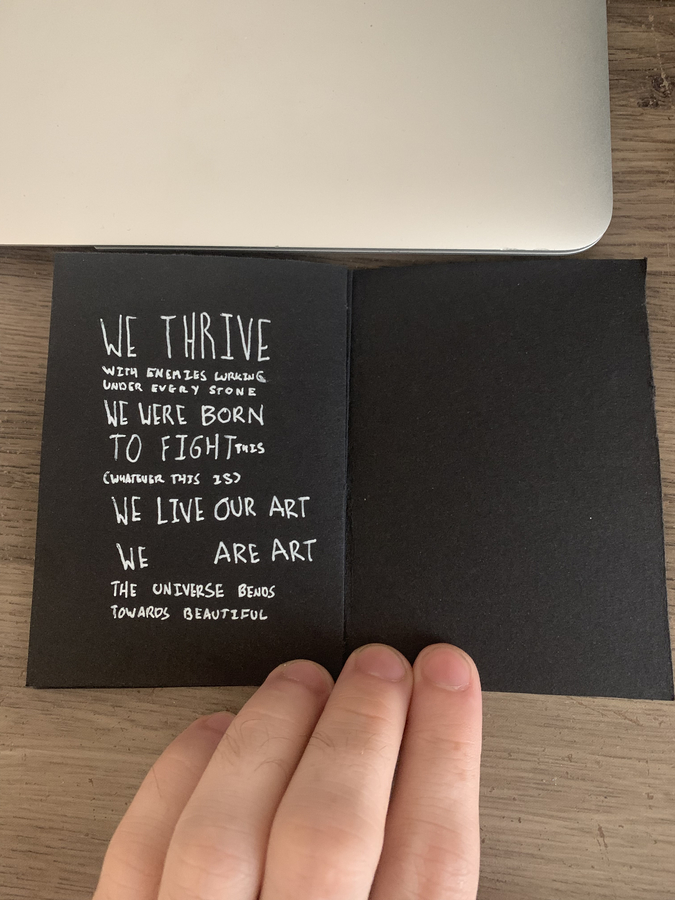 WE THRIVE
WITH ENEMIES LURKING
UNDER EVERY STONE
WE WERE BORN
TO FIGHT THIS
(WHATEVER THIS IS)
WE LIVE OUR ART
WE ARE ART
THE UNIVERSE BENDS
TOWARDS BEAUTIFUL